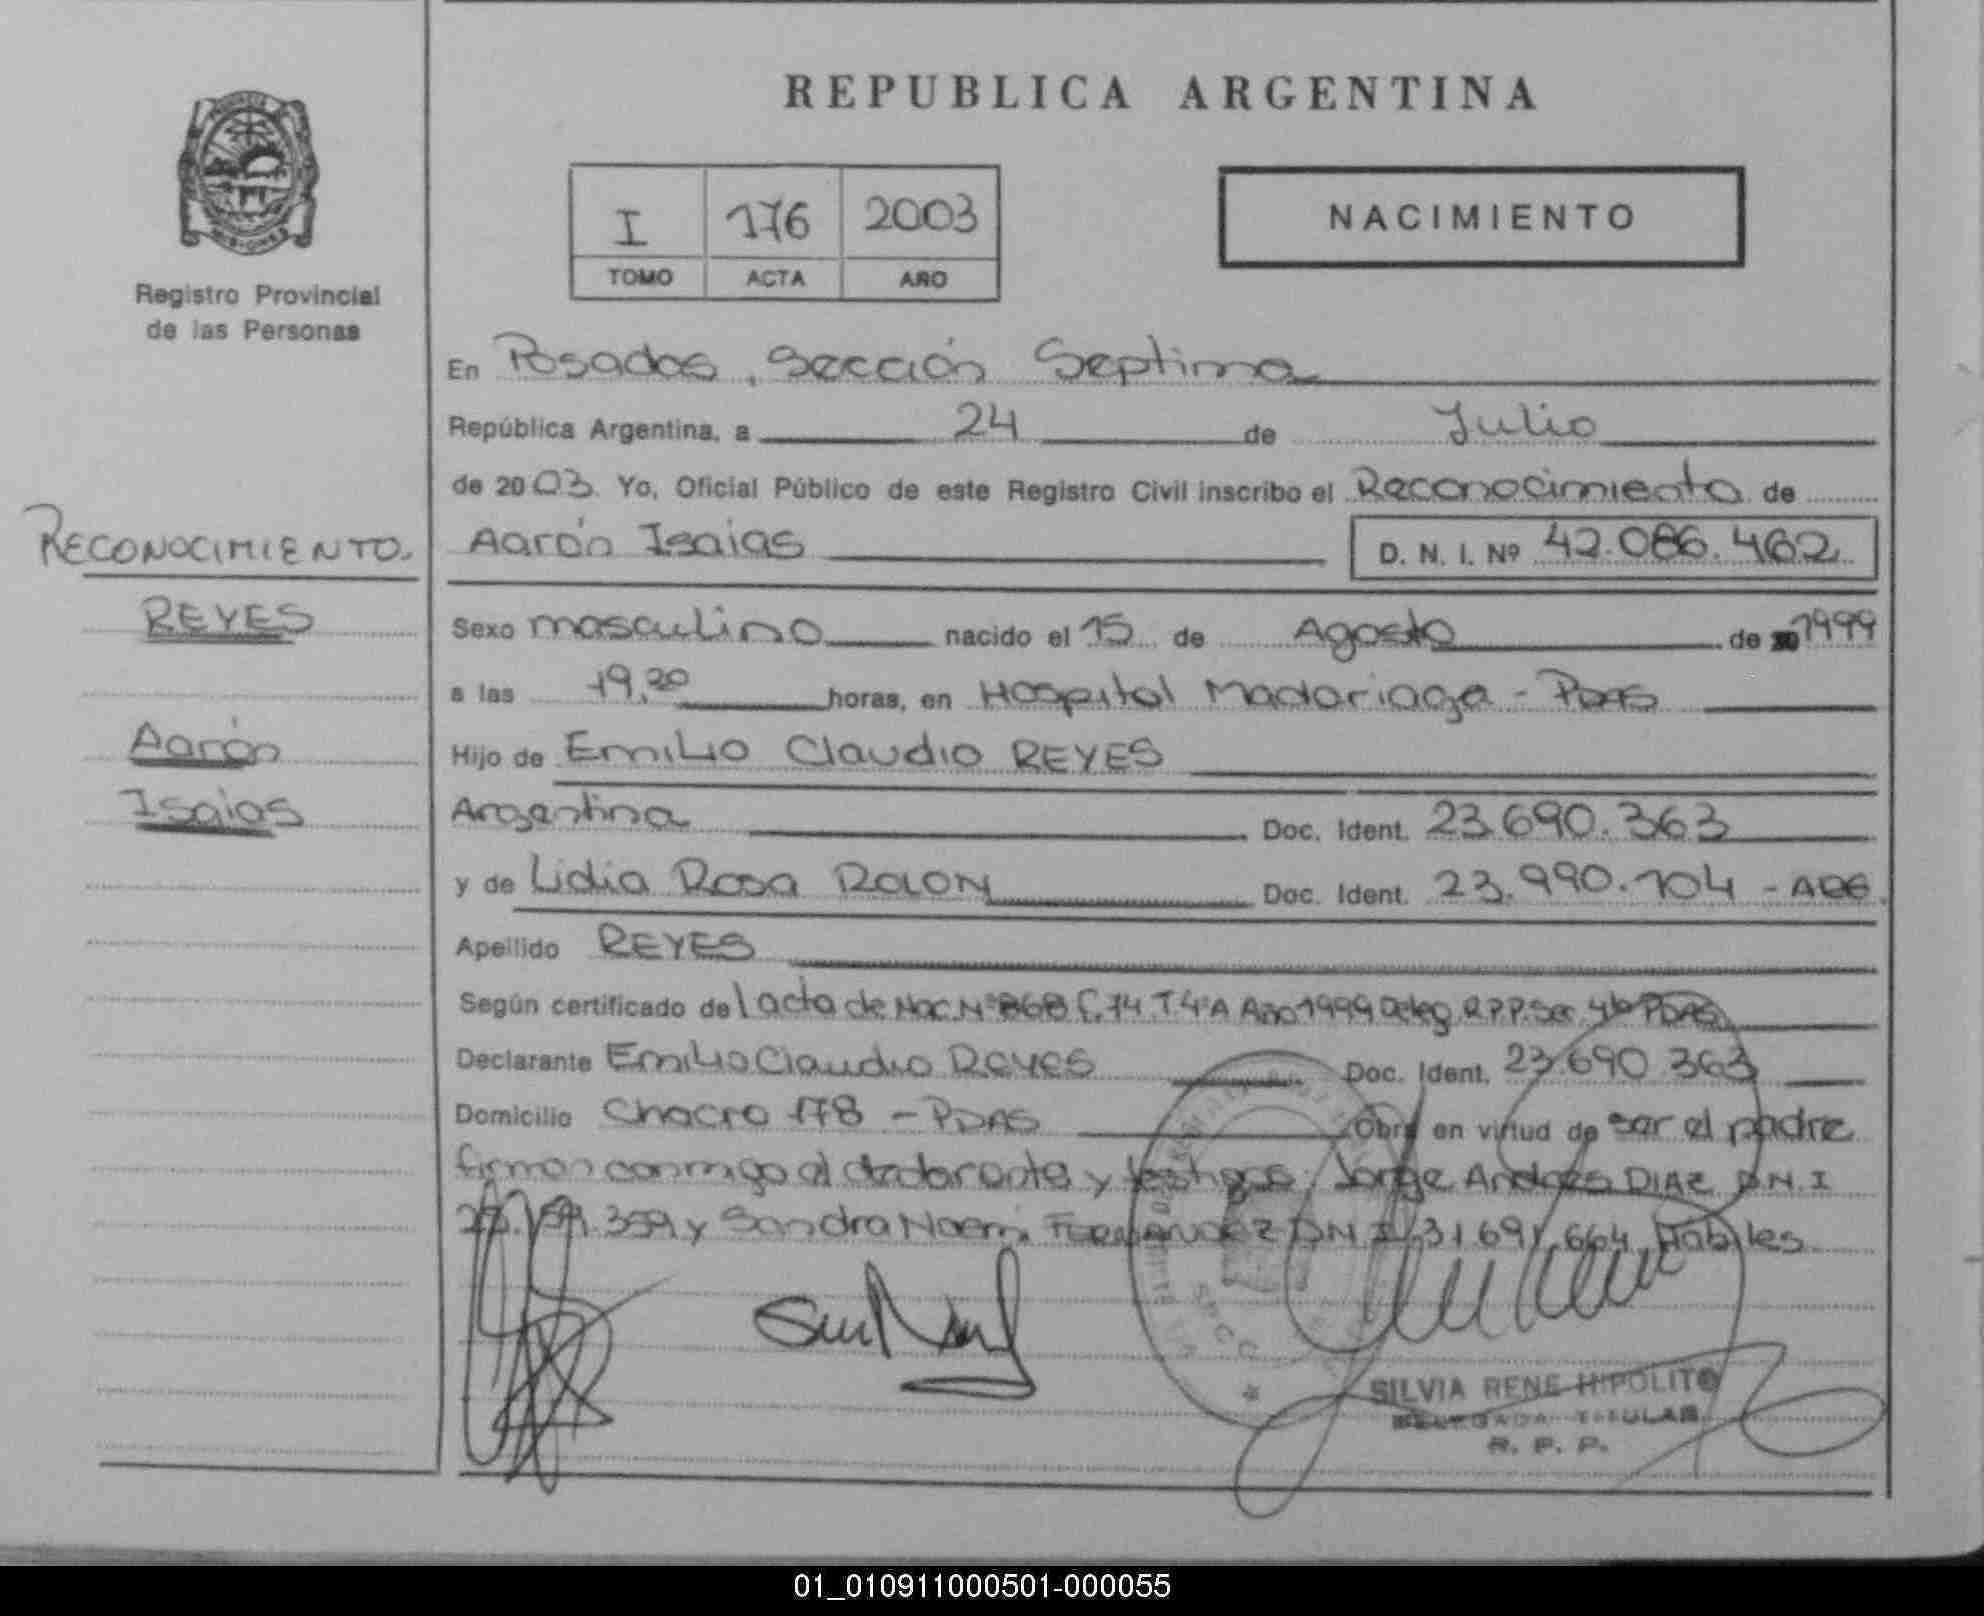 REPUBLICA ARGENTINA
I 176 2003
TOMO ACTA AÑO
NACIMIENTO
Registro Provincial
de las Personas
En Posadas, Sección Septima
República Argentina, a 24 de Julio
de 2003. Yo, Oficial Público de este Registro Civil inscribo el Reconocimiento de
Aarón Isaias D. N. I. Nº 42.086.462
RECONOCIMIENTO.
REYES
Aarón
Isaias
Sexo masculino nacido el 15 de Agosto de 1999
a las 19,20 horas, en Hospital Madariaga - PDAS
Hijo de Emilio Claudio REYES
Argentina Doc. Ident. 23.690.363
y de Lidia Rosa Doc. Ident. 23.990.104 - ARG.
Apellido REYES
Según certificado del acta de Nac. Nº 868 f. 74 T. 4ºA Año 1999 Deleg. R.P.P. Sec. 4ta PDAS
Declarante Emilio Claudio REYES Doc. Ident. 23.690.363
Domicilio Chacra 178 - PDAS Obra en virtud de ser el padre
firman conmigo el declarante y testigos: Jorge Andrés DIAZ D.N.I
359 y Sandra Noemi FERNANDEZ D.N.I. 31.691.664, Hábiles
SILVIA RENE HIPOLITO
DELEGADA TITULAR
R. P. P.
01_010911000501-000055